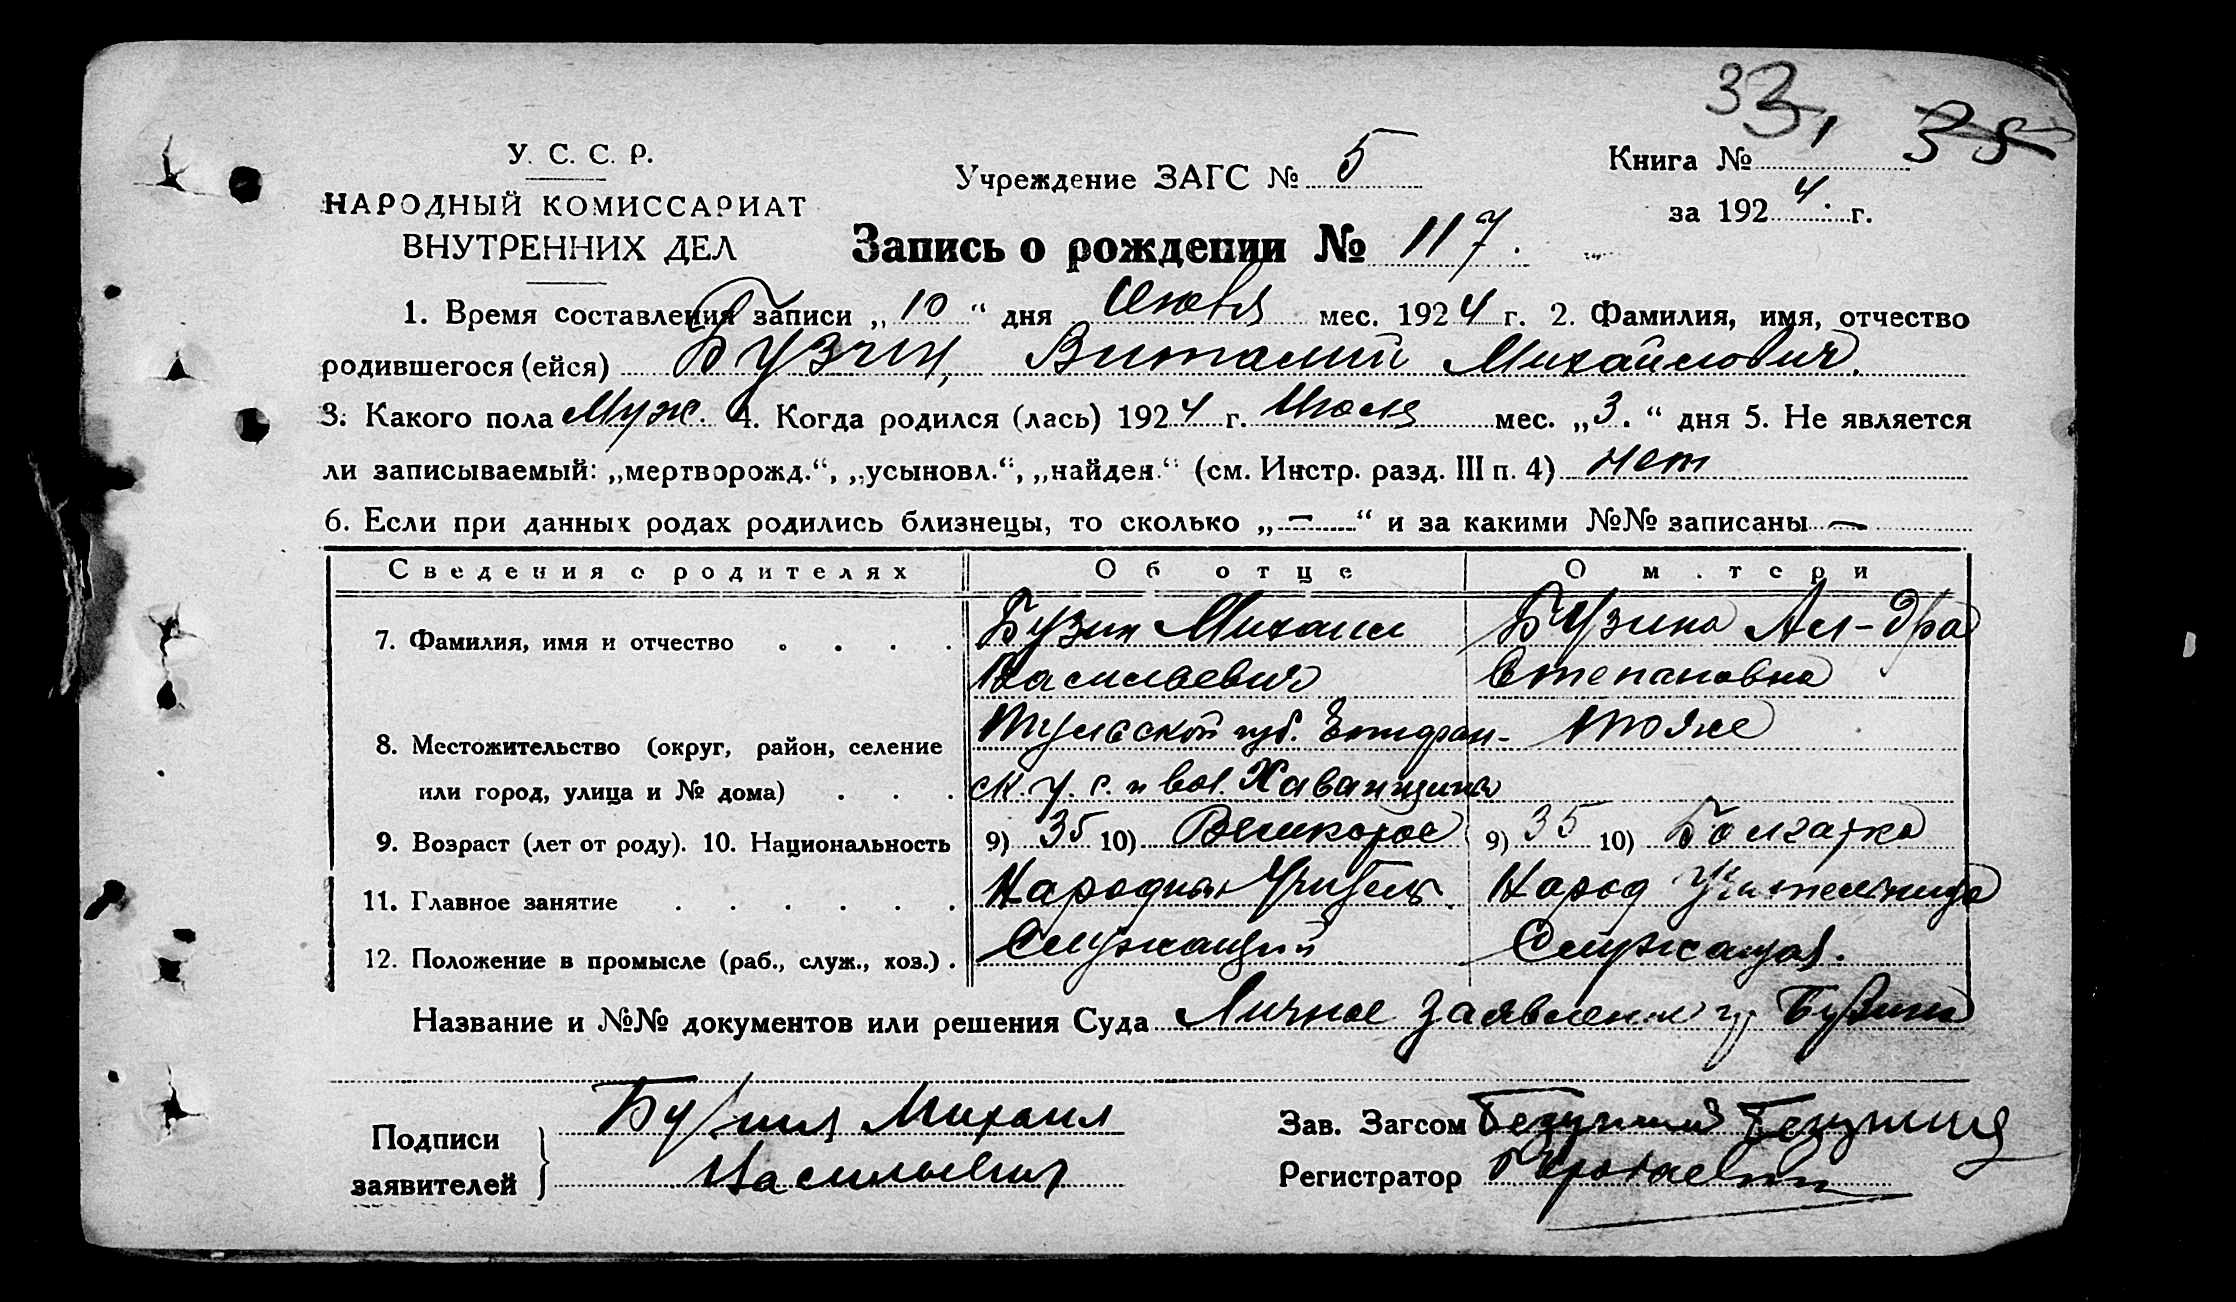 33, 35
У. С. С. Р.
НАРОДНЫЙ КОМИССАРИАТ
ВНУТРЕННИХ ДЕЛ
Учреждение ЗАГС № 5
Книга №
за 1924 г.
Запись о рождении № 117.
1. Время составления записи „10“ дня мес. 1924 г. 2. Фамилия, имя, отчество
родившегося (ейся) Бузин, Виталий Михайлович.
3. Какого пола Муж. 4. Когда родился (лась) 1924 г. Июля мес. „3.“ дня 5. Не является
ли записываемый: „мертворожд.“, „усыновл.“, „найден.“ (см. Инстр. разд. III п. 4) нет
6. Если при данных родах родились близнецы, то сколько „—“ и за какими №№ записаны —
Сведения о родителях Об отце О м.тери
7. Фамилия, имя и отчество Бузин Михаил Бузина Ал-дра
Васильевич Степановна
8. Местожительство (округ, район, селение Тульской губ. тоже
или город, улица и № дома)
9. Возраст (лет от роду). 10. Национальность 9) 35 10) Великорос 9) 35 10) Болгарка
11. Главное занятие Народный Учитель Народ Учительница
12. Положение в промысле (раб., служ., хоз.) Служащий Служащая.
Название и №№ документов или решения Суда Личное заявление гр Бузина
Подписи
заявителей
Бузин Михаил
Васильевич
Зав. Загсом
Регистратор